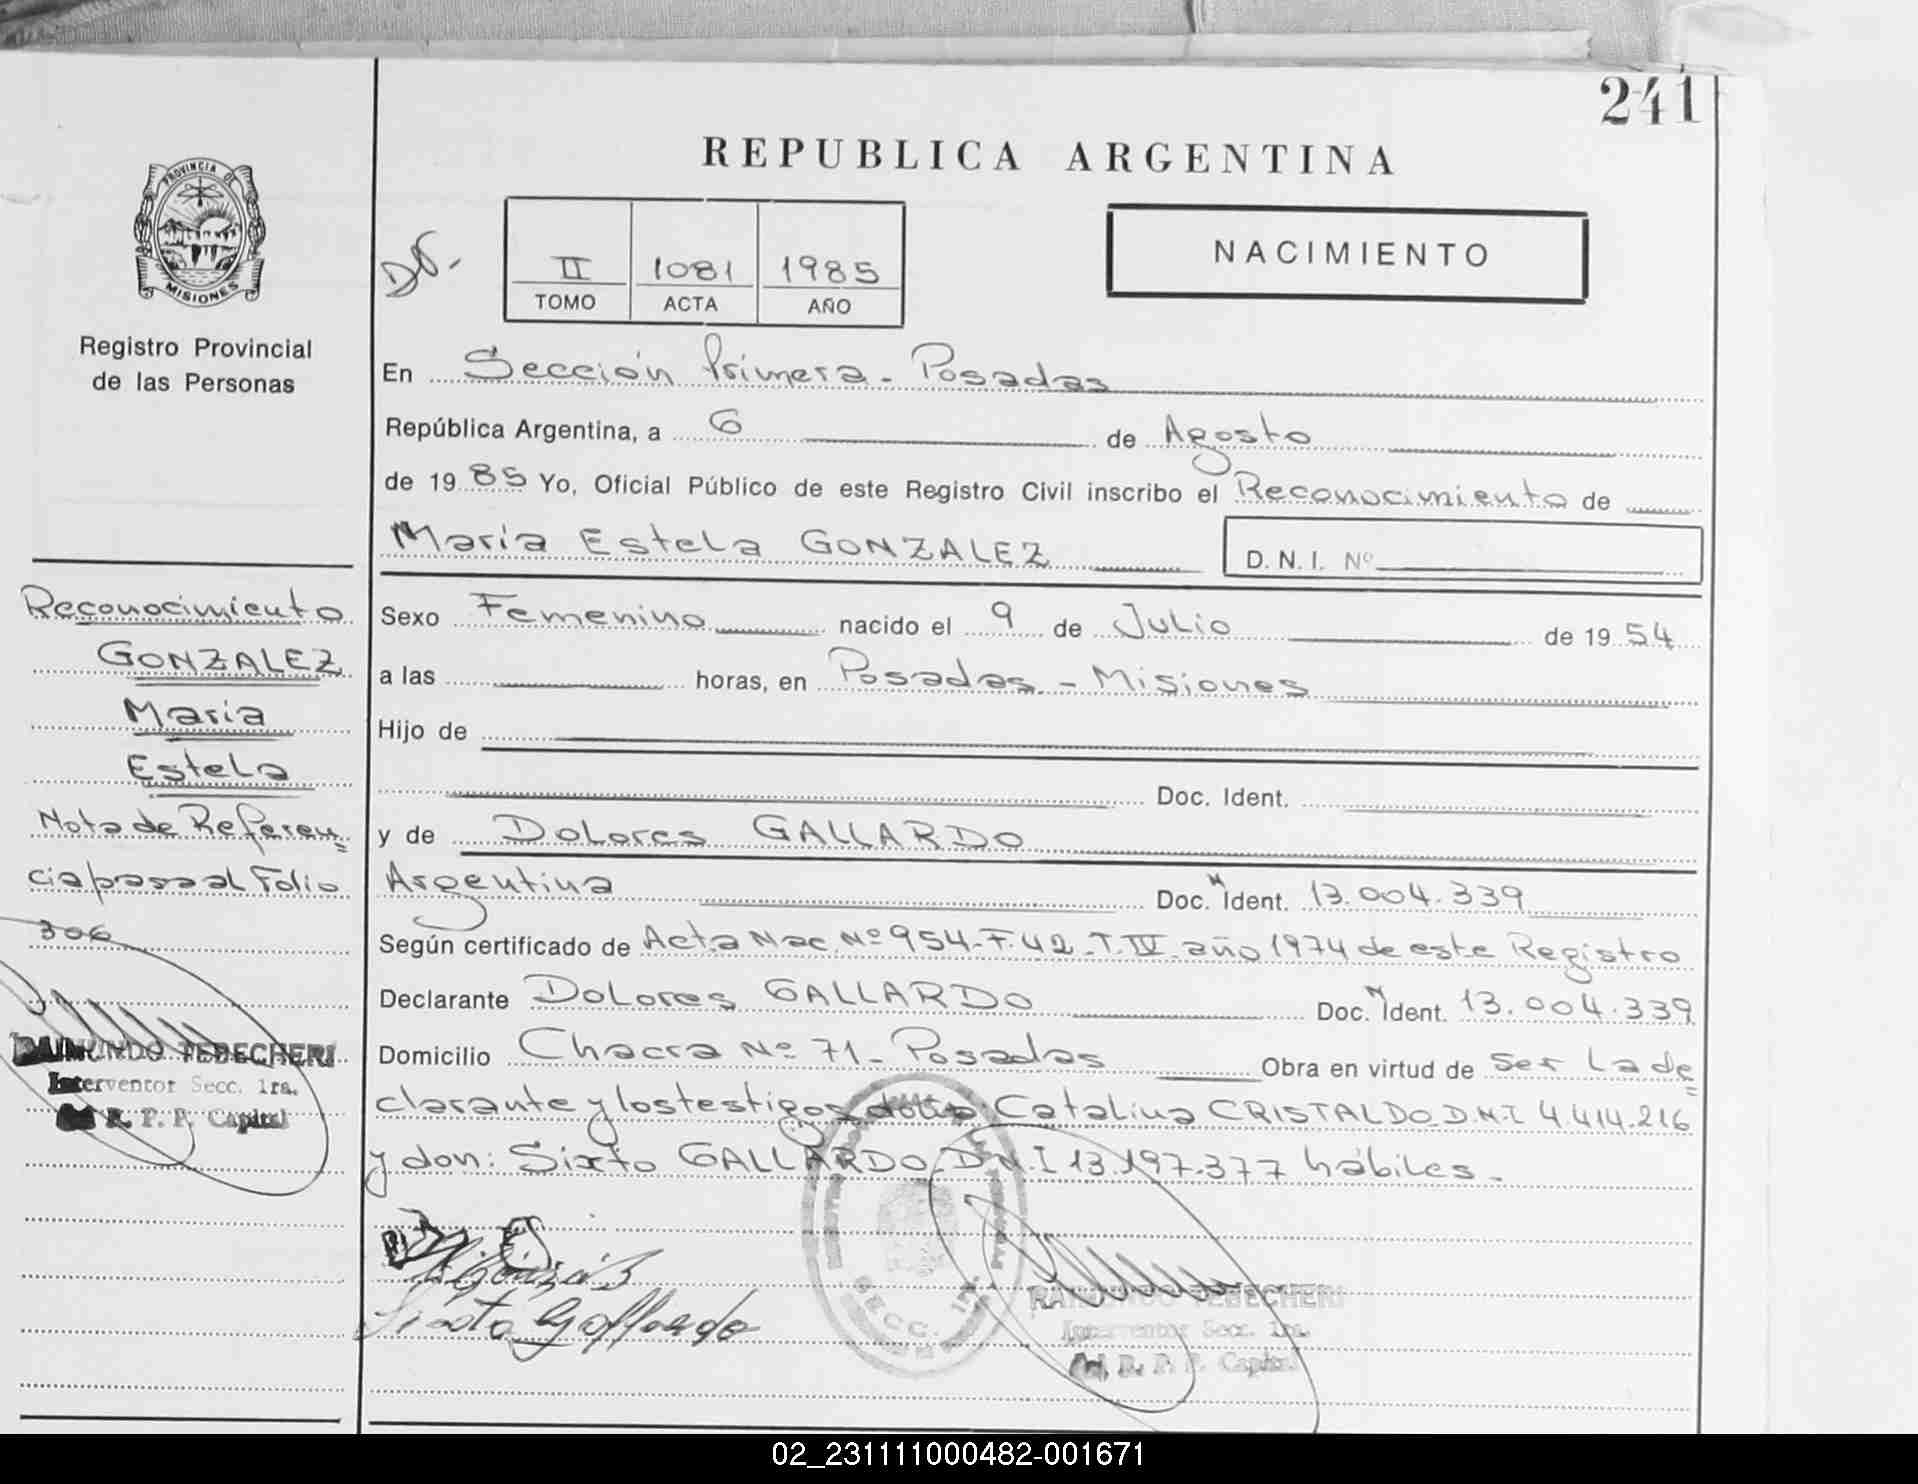 241
REPUBLICA ARGENTINA
PROVINCIA DE
MISIONES
Registro Provincial
de las Personas
II 1081 1985
TOMO ACTA AÑO
NACIMIENTO
En Sección Primera - Posadas
República Argentina, a 6 de Agosto
de 1985 Yo, Oficial Público de este Registro Civil inscribo el Reconocimiento de
María Estela GONZALEZ D. N. I. Nº
Sexo Femenino nacido el 9 de Julio de 1954
a las horas, en Posadas - Misiones
Hijo de
Doc. Ident.
y de Dolores GALLARDO
Argentina Doc. N Ident. 13.004.339
Según certificado de Acta Nac. Nº 954-F.42-T.IV año 1974 de este Registro
Declarante Dolores GALLARDO Doc. N Ident. 13.004.339
Domicilio Chacra Nº 71 - Posadas Obra en virtud de ser la de=
clarante y los testigos doña Catalina CRISTALDO D.N.I 4.414.216
y don: Sixto GALLARDO D.N.I 13.197.377 hábiles.
Reconocimiento
GONZALEZ
María
Estela
Nota de Referen=
cia pasa al Folio
306
RAIMUNDO TEBECHERI
Interventor Secc. 1ra.
R. P. P. Capital
Sixto Gallardo
SECC. 1ra.
RAIMUNDO TEBECHERI
Interventor Secc. 1ra.
R. P. P. Capital
02_231111000482-001671